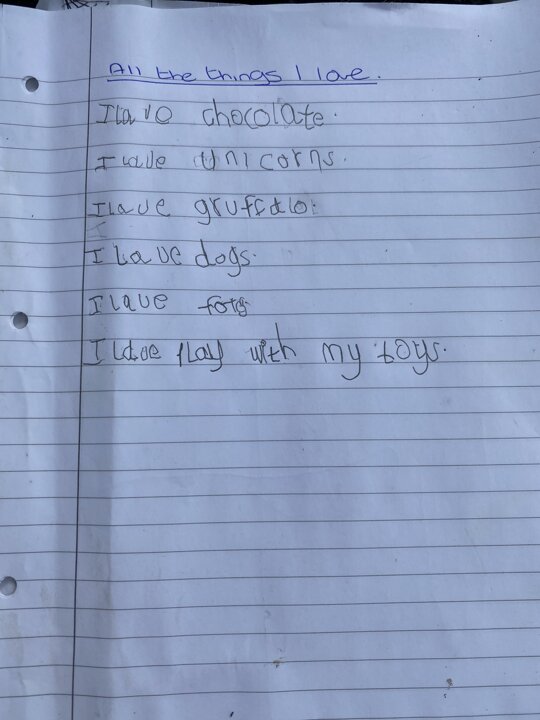 All the things I love.
I lavo chocolate.
I lave unicorns.
I lave gruffalo.
I lave dogs.
I lave
I lave play with my toys.